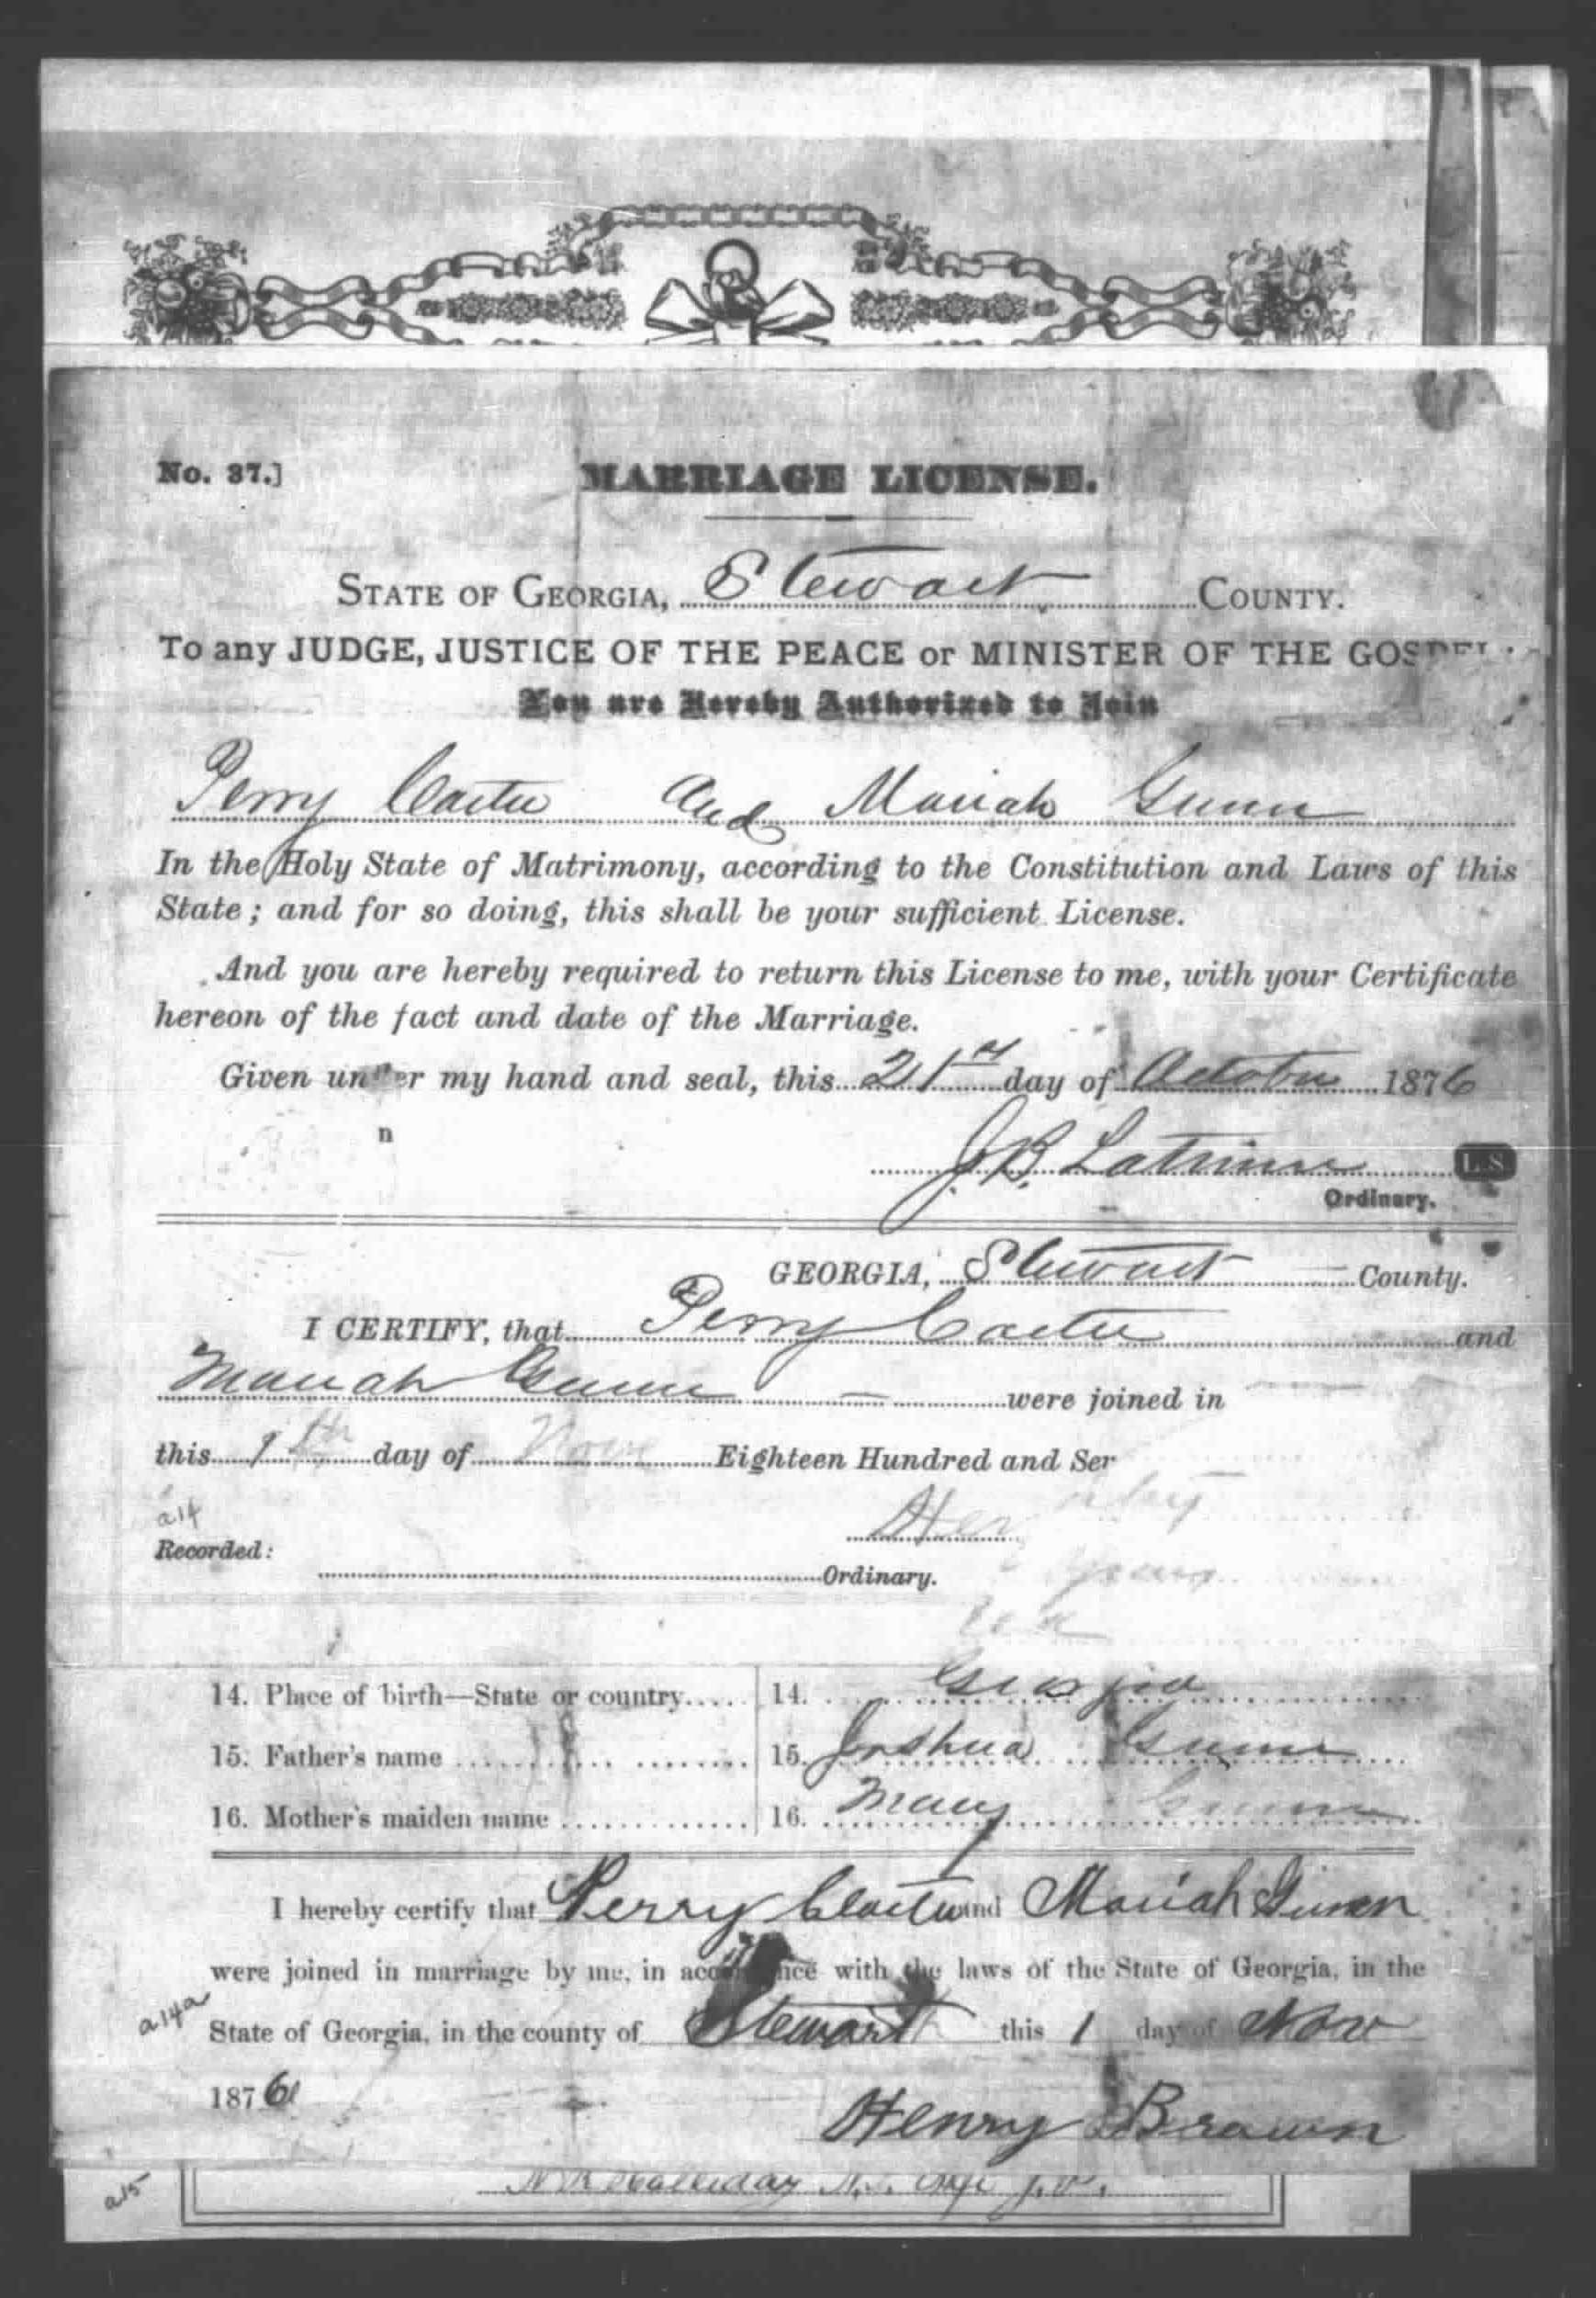 No. 37.]
MARRIAGE LICENSE.
STATE OF GEORGIA, Stewart COUNTY.
To any JUDGE, JUSTICE OF THE PEACE or MINISTER OF THE GOSPEL:
You are Hereby Authorized to Join
Perry Carter and Mariah Gunn
In the Holy State of Matrimony, according to the Constitution and Laws of this
State; and for so doing, this shall be your sufficient License.
And you are hereby required to return this License to me, with your Certificate
hereon of the fact and date of the Marriage.
Given under my hand and seal, this 21st day of October 1876
J. B. Latimer L.S.
Ordinary.
GEORGIA, Stewart County.
I CERTIFY, that Perry Carter and
Mariah Gunn were joined in
this 1th day of Nov Eighteen Hundred and Ser
a14
Hen
Recorded:
Ordinary.
14. Place of birth—State or country..... 14. Georgia
15. Father's name 15. Joshua Gunn
16. Mother's maiden name 16. Mary Gunn
I hereby certify that Perry Carter and Mariah Gunn
were joined in marriage by me, in accordance with the laws of the State of Georgia, in the
a14a
State of Georgia, in the county of Stewart this 1 day of Nov
1876
Henry Brown
a15
Halliday N.P. J.P.